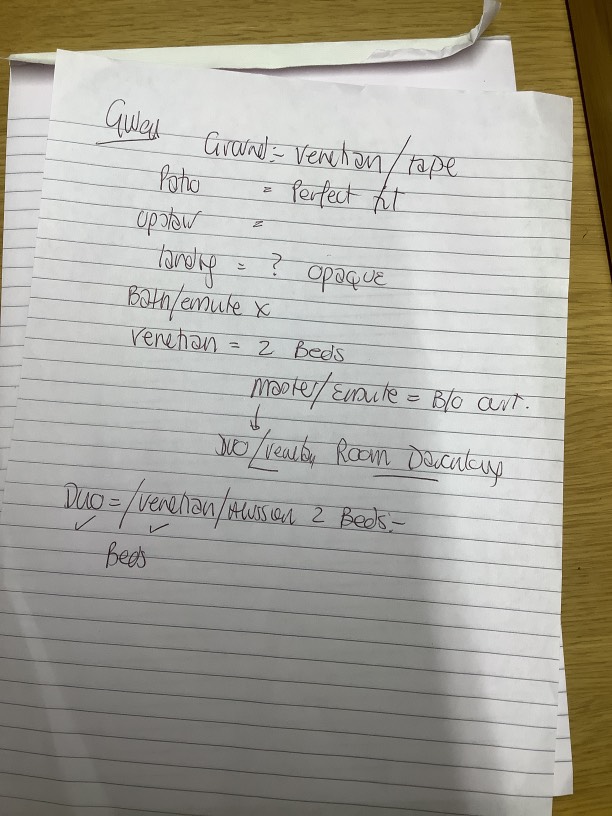 Gwen
Ground:- Venetian/tape
Patio = Perfect fit
upstair =
landing = ? OPAQUE
Bath/ensuite X
Venetian = 2 Beds
Master/Ensuite = B/O curt.
DUO/ Room
DUO = /Venetian/ 2 Beds:-
Beds